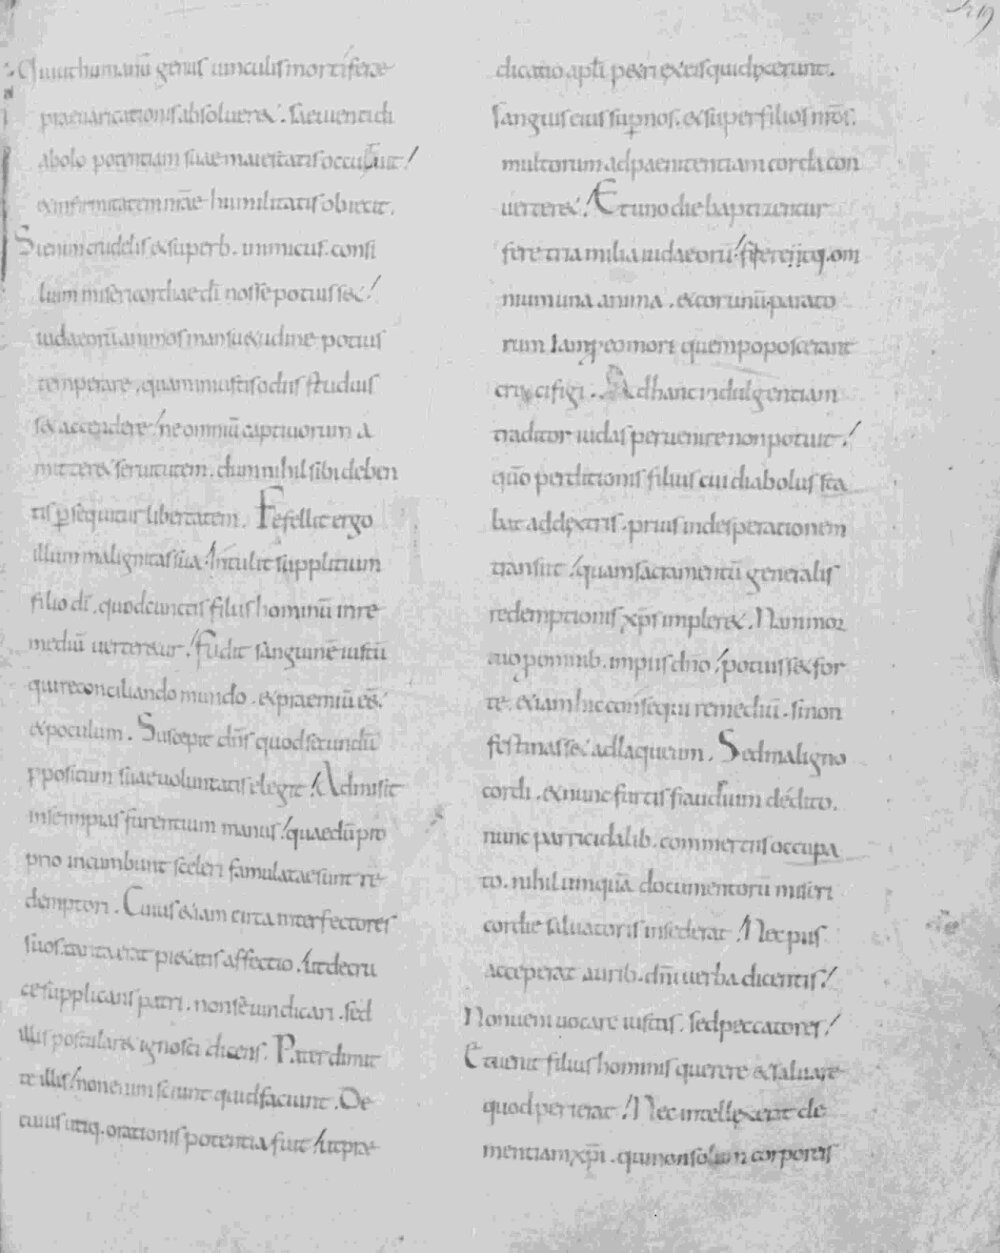 Qui ut humanū genus uinculis mortiferae
praeuaricationis absolueret. saeuienti di
abolo potentiam suae maiestatis occuluit!
& infirmitatem nrāe humilitatis obiecit.
Si enim crudelis & superb. inimicus. consi
lium misericordiae dī nosse potuisset!
iudaeorū animos mansuetudine potius
temperare, quam iniustis odiis studuis
set accendere! ne omniū captiuorum a
mitteret seruitutem. dum nihil sibi deben
tis persequitur libertatem. Fefellit ergo
illum malignitas sua. Intulit supplicium
filio dī, quod cunctis filiis hominū in re
mediū uerteretur! fudit sanguinē iustū
qui reconciliando mundo. & praemiū eēt
& poculum. Suscepit dn̄s quod secundū
ppositum suae uoluntatis elegit! Admisit
in se impias furentium manus! quae dū pro
prio incumbunt sceleri famulatae sunt re
demptori. Cuius etiam circa interfectores
suos tanta erat pietatis affectio. ut de cru
ce supplicans patri. non sē uindicari. sed
illis postularet ignosci dicens. Pater dimit
te illis! non enim sciunt quid faciunt. De
cuius utiq. orationis potentia fuit! ut prae
dicatio aplī petri ex eis qui dixerunt.
sanguis eius sup nos. & super filios nrōs.
multorum ad paenitentiam corda con
uerteret! Et uno die baptizentur
fere tria milia iudaeorū! fierentq. om
nium una anima. & cor unū. parato
rum iam p eo mori quem poposcerant
crucifigi. Ad hanc indulgentiam
traditor iudas peruenire non potuit!
qūo perditionis filius cui diabolus sta
bat a dextris. prius in desperationem
transiit! quam sacramentū generalis
redemptionis xp̄s impleret. Nam mor
tuo p omnib. impiis dn̄o! potuisset for
te. etiam hic consequi remediū. si non
festinasset ad laqueum. Sed maligno
cordi. & nunc furtis fraudium dedito.
nunc parricidalib. commerciis occupa
to. nihil umquā documentorū miseri
cordie saluatoris insederat! Nec piis
acceperat aurib. dnī uerba dicentis!
Non ueni uocare iustos. sed peccatores!
Et uenit filius hominis querere & saluare
quod perierat! Nec intellexerat cle
mentiam xpī. qui non solum corporeis